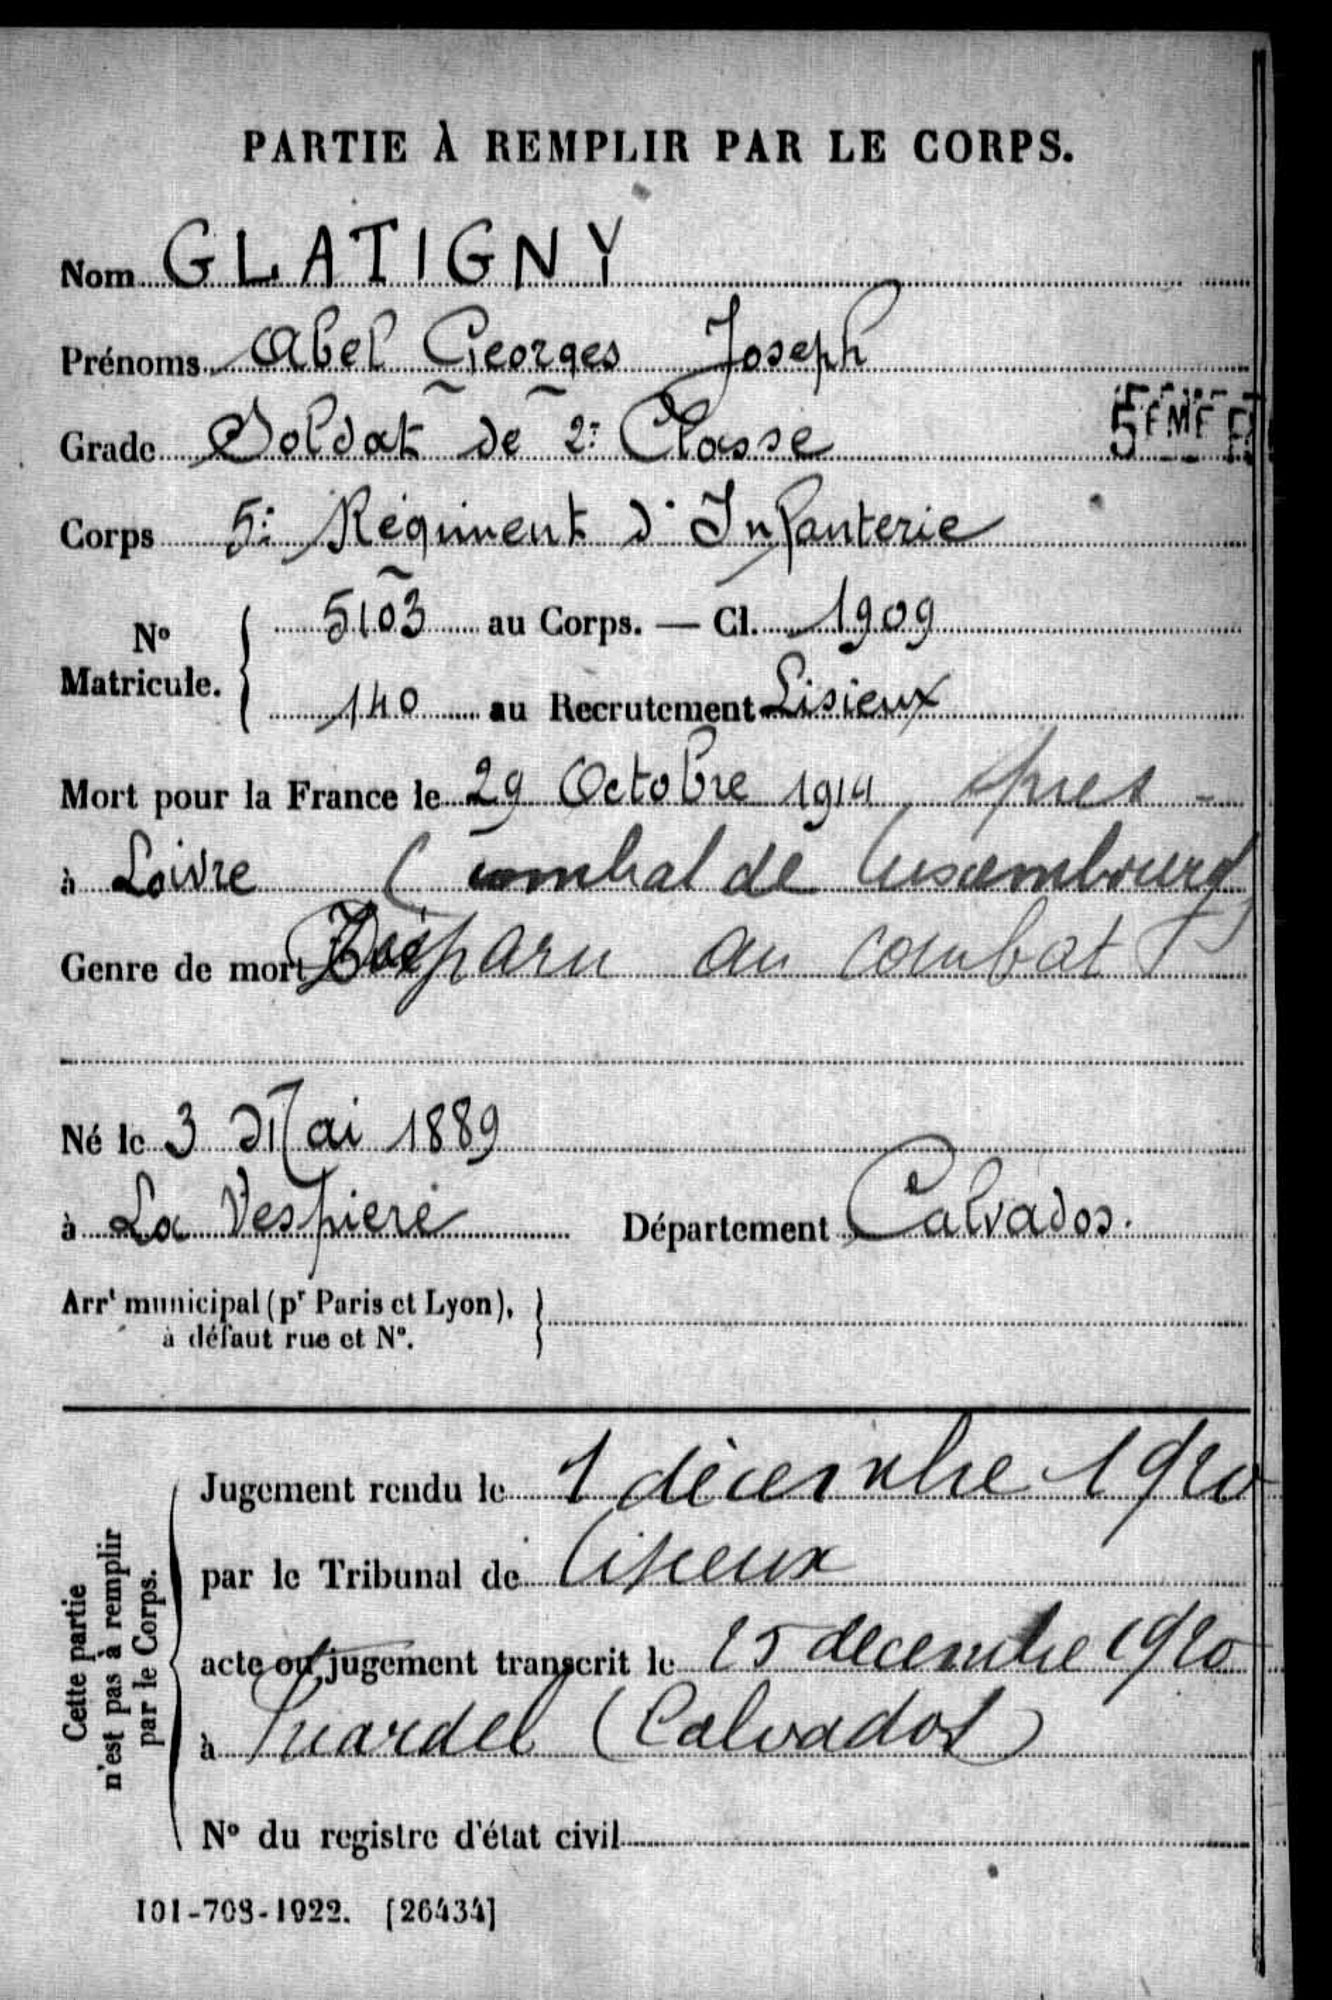 PARTIE À REMPLIR PAR LE CORPS.
Nom GLATIGNY
Prénoms Abel Georges Joseph
Grade Soldat de 2e Classe
5EME
Corps 5e Régiment d'Infanterie
No Matricule. 5103 au Corps. — Cl. 1909
140 au Recrutement Lisieux
Mort pour la France le 29 Octobre 1914 près
à Loivre (combat de Luxembourg)
Genre de mort Disparu au combat
Né le 3 Mai 1889
à La Vespière Département Calvados.
Arrt municipal (pr Paris et Lyon),
à défaut rue et No.
Cette partie n'est pas à remplir par le Corps.
Jugement rendu le 1 décembre 1920
par le Tribunal de Lisieux
acte ou jugement transcrit le 25 décembre 1920
à (Calvados)
No du registre d'état civil
101-708-1922. [26434]